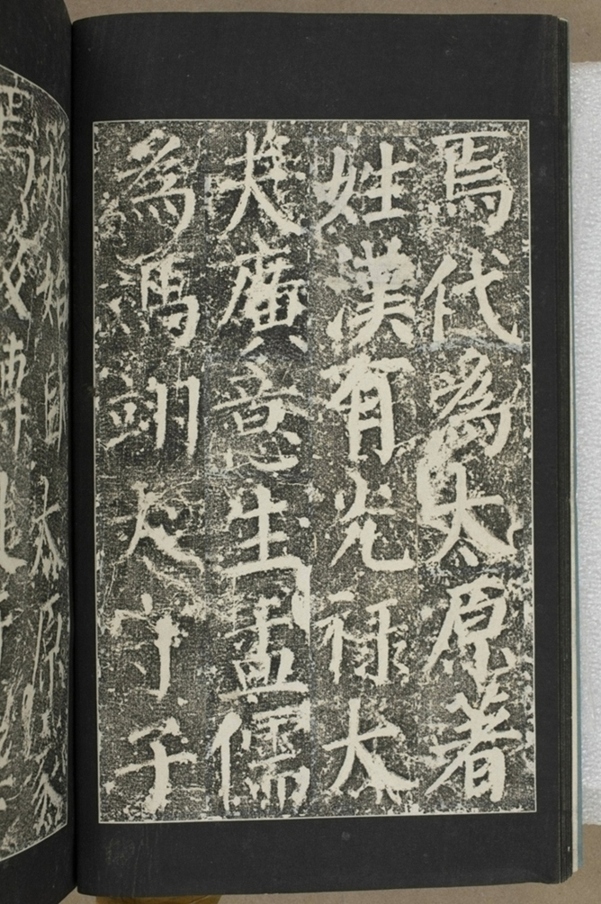 焉代為太原著
姓漢有光祿大
夫廣意生孟儒
為馮翊太守子
自太原